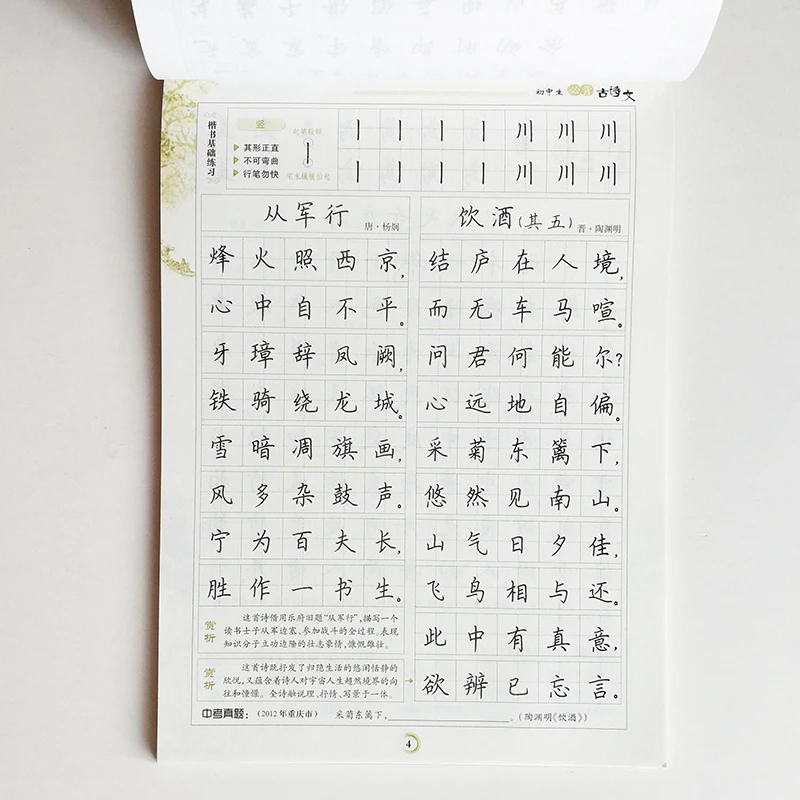 初中生必背古诗文
楷书基础练习
竖
其形正直
不可弯曲
行笔勿快
丨丨丨丨川川川
丨丨丨丨川川川
从军行
唐·杨炯
烽火照西京，
心中自不平。
牙璋辞凤阙，
铁骑绕龙城。
雪暗凋旗画，
风多杂鼓声。
宁为百夫长，
胜作一书生。
赏析
这首诗借用乐府旧题“从军行”，描写一个
读书士子从军边塞、参加战斗的全过程。表现
知识分子立功边陲的壮志豪情，慷慨雄壮。
饮酒(其五)
晋·陶渊明
结庐在人境，
而无车马喧。
问君何能尔？
心远地自偏。
采菊东篱下，
悠然见南山。
山气日夕佳，
飞鸟相与还。
此中有真意，
欲辨已忘言。
赏析
这首诗既抒发了归隐生活的悠闲恬静的
欣悦，又蕴含着诗人对宇宙人生超然境界的向
往和憧憬。全诗融说理、抒情、写景于一体。
中考真题：（2012年重庆市） 采菊东篱下，____________。（陶渊明《饮酒》）
4